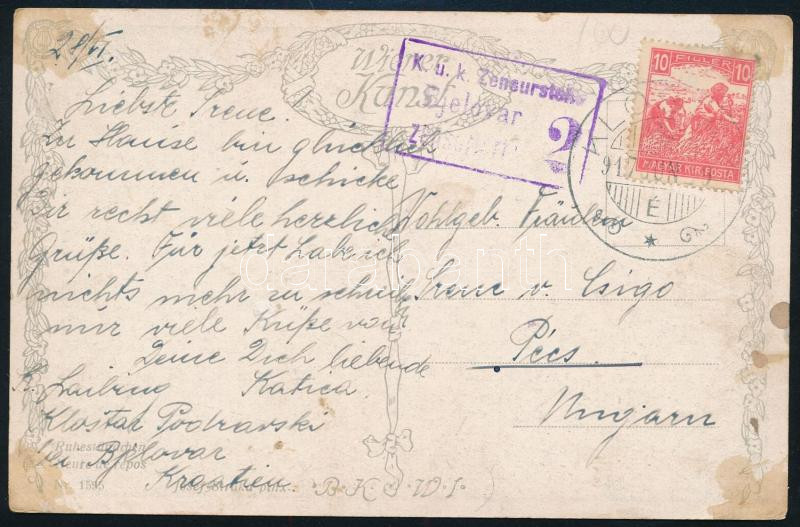 28/VI.
Liebste Irene.
Zu Hause bin glücklich
gekommen u. schicke
Dir recht viele herzliche
Grüße. Für jetzt habe ich
nichts mehr zu schreib
nur viele Küße von
Deine Dich liebende
Katica.
Kloštar Podravski
bei Bjelovar
Kroatien
Wiener
Kunst
K. u. k. Zensurstelle
Bjelovar
2
10 FILLÉR 10
MAGYAR KIR. POSTA
É
Wohlgeb. Fräulein
Irene v. Csigo
Pécs.
Ungarn
Ruhestündchen
Heure de repos
Nr. 1595
Josef Straka pinx.
B.K.W.I.
darabanth